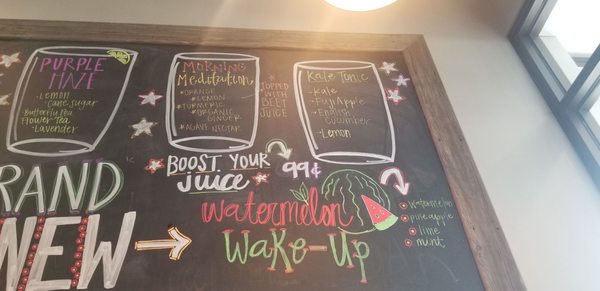 PURPLE
HAZE
- Lemon
- Cane sugar
- Butterfly Tea
Flower Tea
- Lavender
MORNING
Meditation
* ORANGE
* LEMON
* TURMERIC
* ORGANIC
GINGER
* AGAVE NECTAR
* TOPPED
WITH
BEET
JUICE
Kale Tonic
- Kale
- Fuji Apple
- English
cucumber
- Lemon
BOOST YOUR
Juice
99¢
RAND
NEW
Watermelon
Wake-up
watermelon
pineapple
lime
mint